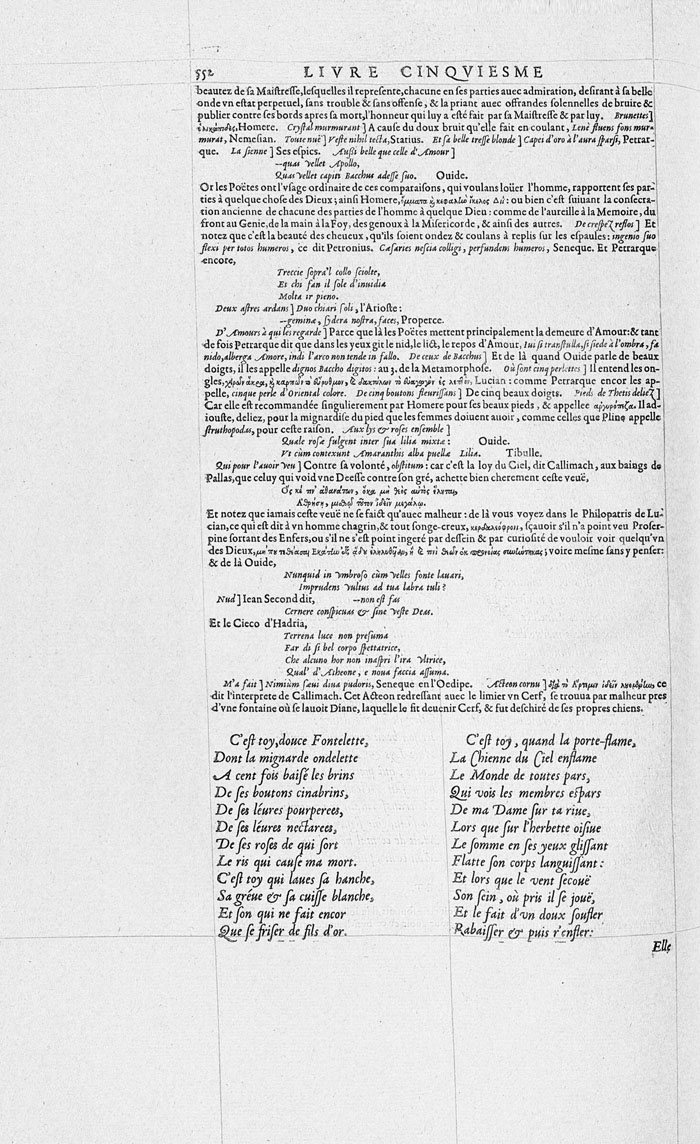 552 LIVRE CINQVIESME
beautez de sa Maistresse, lesquelles il represente, chacune en ses parties auec admiration, desirant à sa belle
onde vn estat perpetuel, sans trouble & sans offense, & la priant auec offrandes solennelles de bruire &
publier contre ses bords apres sa mort, l'honneur qui luy a esté fait par sa Maistresse & par luy. Brunettes]
Homere. Crystal murmurant] A cause du doux bruit qu'elle fait en coulant, Lene fluens fons mur-
murat, Nemesian. Toute nuë] Veste nihil tecta, Statius. Et sa belle tresse blonde] Capei d'oro à l'aura sparsi, Petrar-
que. La sienne] Ses espics. Aussi belle que celle d'Amour]
--quas vellet Apollo,
Quas vellet capiti Bacchus adesse suo. Ouide.
Or les Poëtes ont l'vsage ordinaire de ces comparaisons, qui voulans loüer l'homme, rapportent ses par-
ties à quelque chose des Dieux; ainsi Homere, ou bien c'est suiuant la consecra-
tion ancienne de chacune des parties de l'homme à quelque Dieu: comme de l'aureille à la Memoire, du
front au Genie, de la main à la Foy, des genoux à la Misericorde, & ainsi des autres. De crespez reflos] Et
notez que c'est la beauté des cheueux, qu'ils soient ondez & coulans à replis sur les espaules: ingenio suo
flexi per totos humeros, ce dit Petronius. Cæsaries nescia colligi, perfundens humeros, Seneque. Et Petrarque
encore,
Treccie sopra'l collo sciolte,
Et chi fan il sole d'inuidia
Molta ir pieno.
Deux astres ardans] Duo chiari soli, l'Arioste:
--geminæ, sydera nostra, faces, Properce.
D'Amours à qui les regarde] Parce que là les Poëtes mettent principalement la demeure d'Amour: & tant
de fois Petrarque dit que dans les yeux git le nid, le lict, le repos d'Amour, Iui si transtulla, si siede à l'ombra, fa
nido, alberga Amore, indi l'arco non tende in fallo. De ceux de Bacchus] Et de là quand Ouide parle de beaux
doigts, il les appelle dignos Baccho digitos: au 3. de la Metamorphose. Où sont cinq perlettes] Il entend les on-
gles, Lucian: comme Petrarque encor les ap-
pelle, cinque perle d'Oriental colore. De cinq boutons fleurissans] De cinq beaux doigts. Pieds de Thetis deliez]
Car elle est recommandée singulierement par Homere pour ses beaux pieds, & appellee Il ad-
iouste, deliez, pour la mignardise du pied que les femmes doiuent auoir, comme celles que Pline appelle
struthopodas, pour ceste raison. Aux lys & roses ensemble]
Quale rosæ fulgent inter sua lilia mixtæ: Ouide.
Vt cùm contexunt Amaranthis alba puellæ Lilia. Tibulle.
Qui pour l'auoir veu] Contre sa volonté, obstitum: car c'est la loy du Ciel, dit Callimach, aux baings de
Pallas, que celuy qui void vne Deesse contre son gré, achette bien cherement ceste veuë,
Et notez que iamais ceste veuë ne se faict qu'auec malheur: de là vous voyez dans le Philopatris de Lu-
cian, ce qui est dit à vn homme chagrin, & tout songe-creux, sçauoir s'il n'a point veu Proser-
pine sortant des Enfers, ou s'il ne s'est point ingeré par dessein & par curiosité de vouloir voir quelqu'vn
des Dieux, voire mesme sans y penser:
& de là Ouide,
Nunquid in vmbroso cùm velles fonte lauari,
Imprudens vultus ad tua labra tuli?
Nud] Iean Second dit, --non est fas
Cernere conspicuas & sine veste Deas.
Et le Cieco d'Hadria,
Terrena luce non presuma
Far di si bel corpo spettatrice,
Che alcuno hor non inaspri l'ira vltrice,
Qual' d'Atheone, e noua faccia assuma.
M'a fait] Nimiùm sæui diua pudoris, Seneque en l'Oedipe. Acteon cornu] ce
dit l'interprete de Callimach. Cet Acteon redressant auec le limier vn Cerf, se trouua par malheur pres
d'vne fontaine où se lauoit Diane, laquelle le fit deuenir Cerf, & fut deschiré de ses propres chiens.
C'est toy, douce Fontelette,
Dont la mignarde ondelette
A cent fois baisé les brins
De ses boutons cinabrins,
De ses léures pourperees,
De ses léures nectarees,
De ses roses de qui sort
Le ris qui cause ma mort.
C'est toy qui laues sa hanche,
Sa gréue & sa cuisse blanche,
Et son qui ne fait encor
Que se friser de fils d'or.
C'est toy, quand la porte-flame,
La Chienne du Ciel enflame
Le Monde de toutes pars,
Qui vois les membres espars
De ma Dame sur ta riue,
Lors que sur l'herbette oisiue
Le somme en ses yeux glissant
Flatte son corps languissant:
Et lors que le vent secouë
Son sein, où pris il se jouë,
Et le fait d'vn doux soufler
Rabaisser & puis r'enfler:
Elle